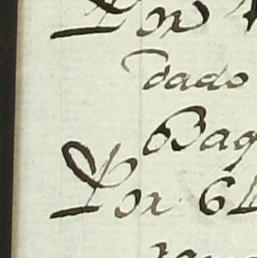 Por
dado
Baq
Por 61